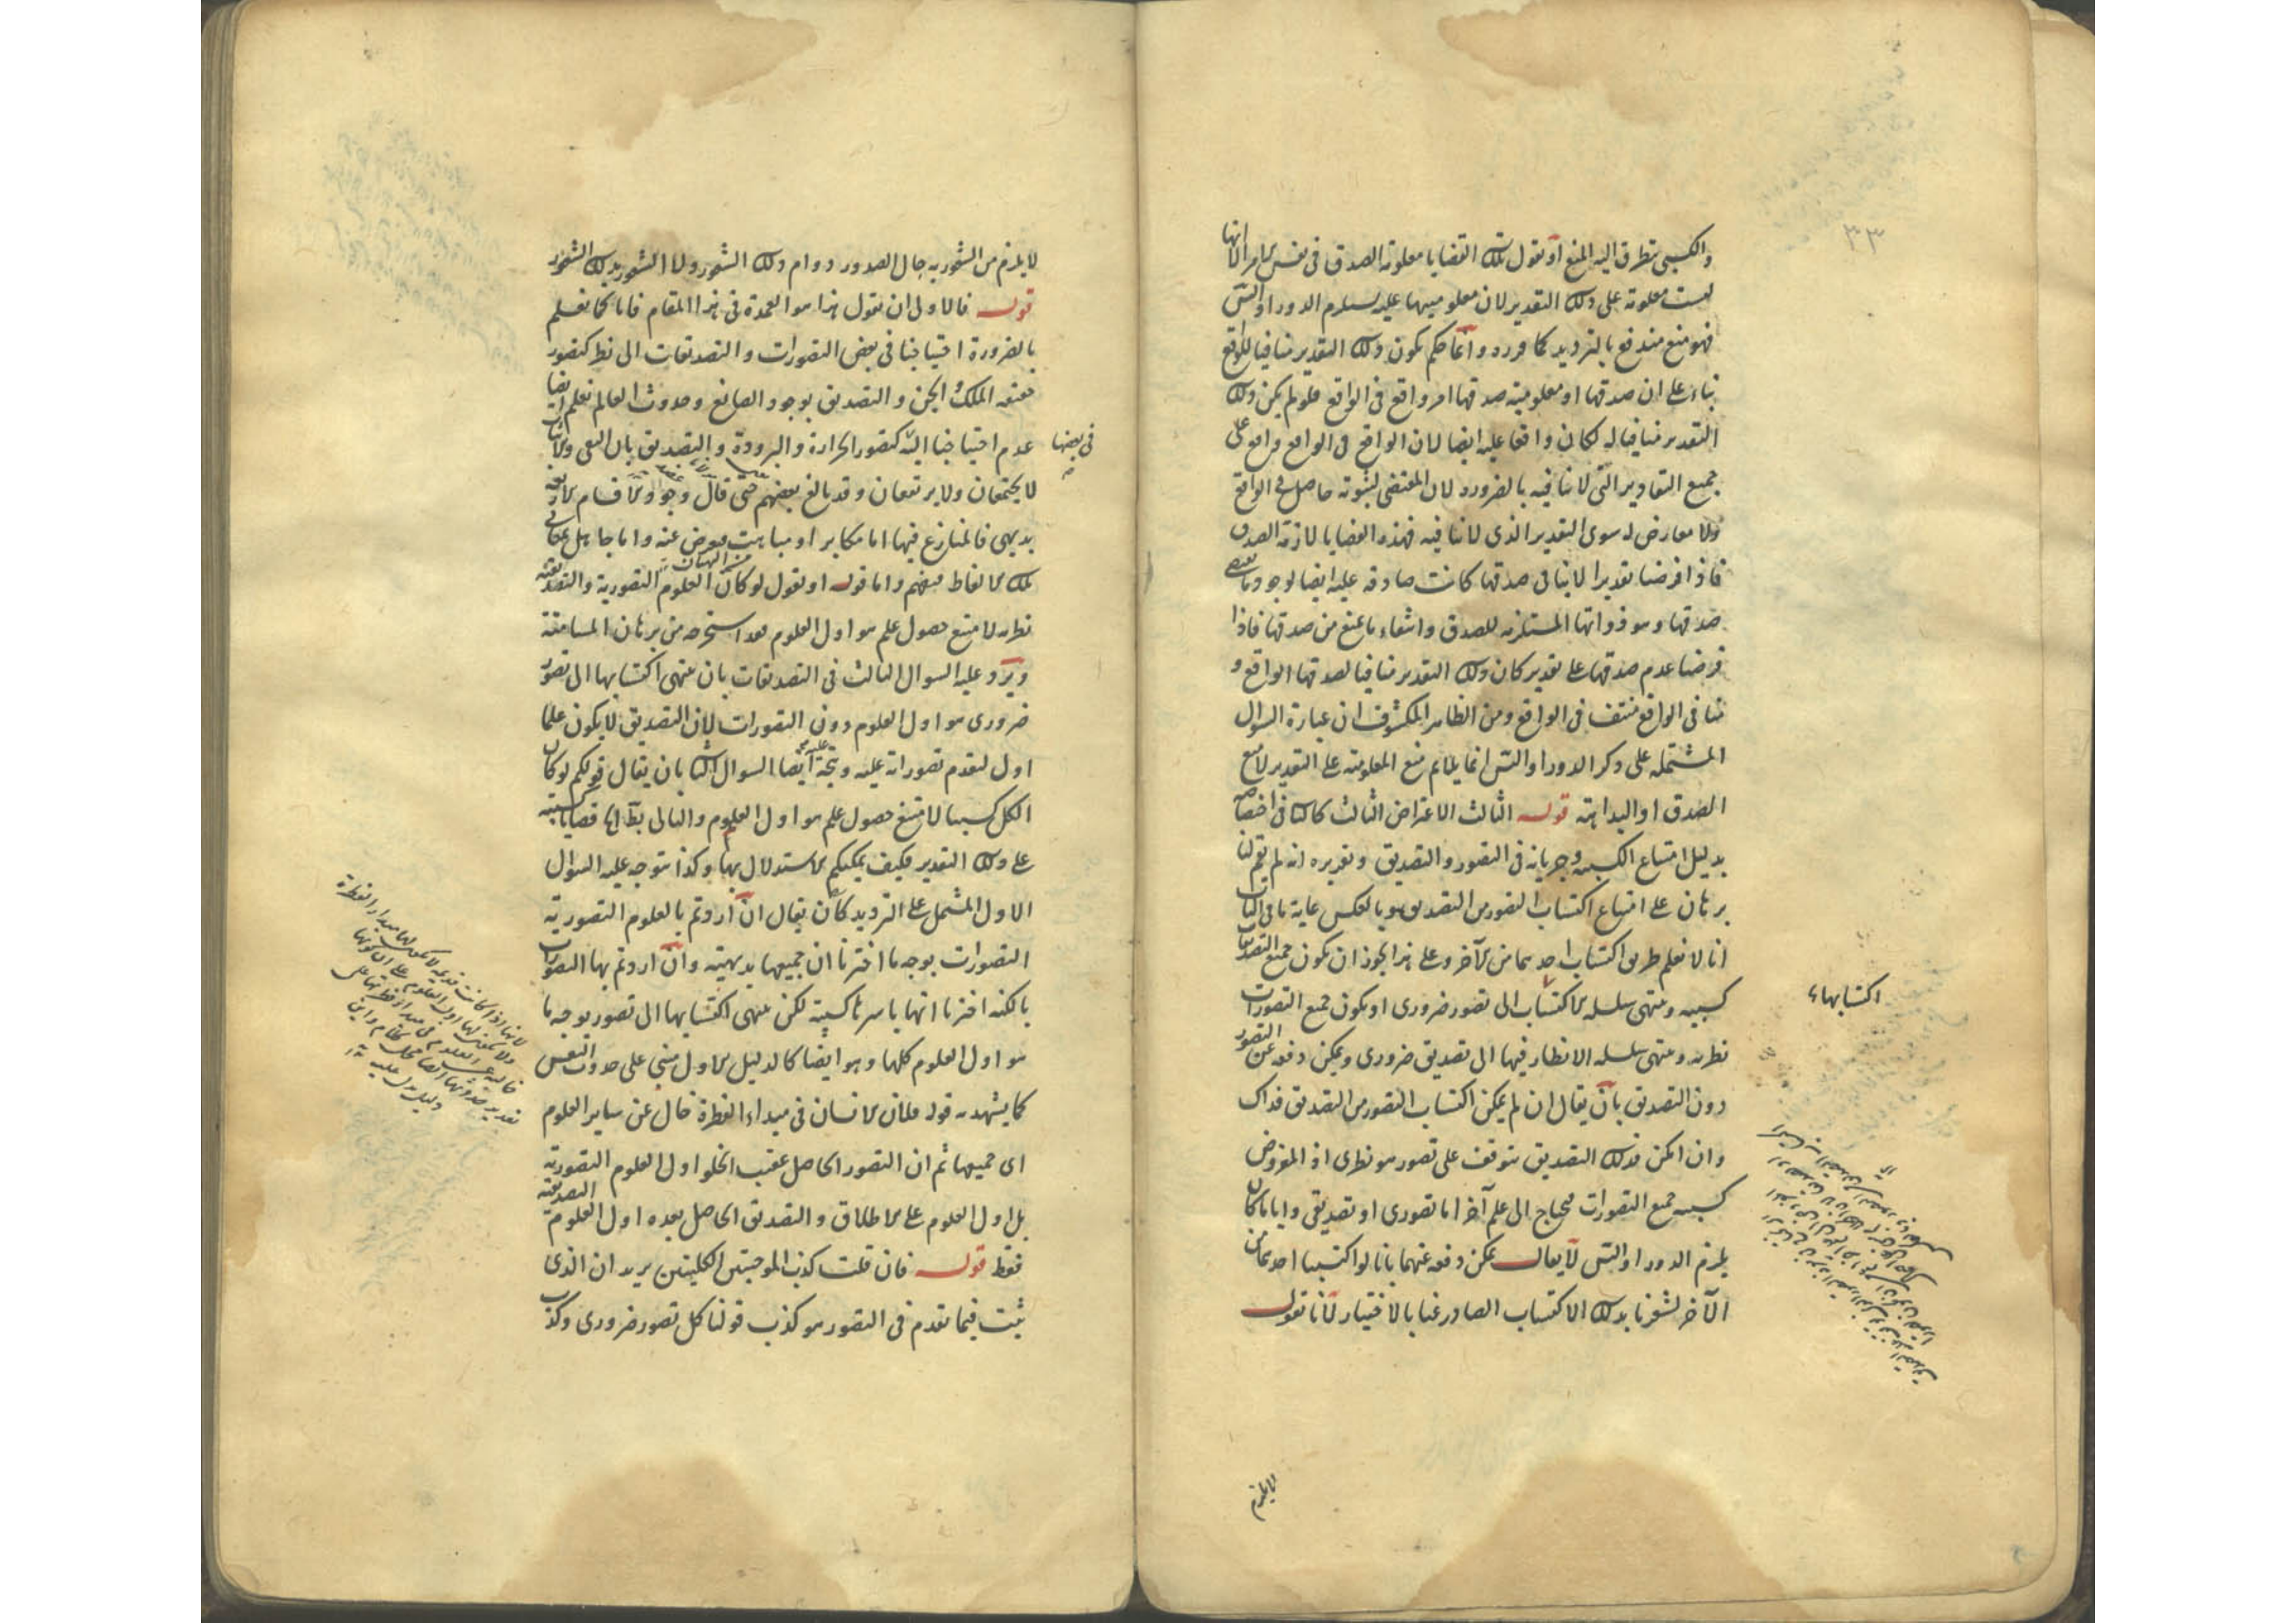 ٣٣
والكسبى يتطرق اليه المنع او نقول تلك القضايا معلومة الصدق فى نفس الامر الا انها
ليست معلومة على ذلك التقدير لان معلوميتها عليه يستلزم الدور او التس
فهو منع مندفع بالترديد كما قرره وانما حكم بكون ذلك التقدير منافيا للواقع
بناء على ان صدقها او معلومية صدقها امر واقع فى الواقع فلو لم يكن ذلك
التقدير منافيا له لكان واقعا عليه ايضا لان الواقع فى الواقع واقع على
جميع التقادير التى لا تنافيه بالضرورة لان المقتضى لثبوته حاصل فى الواقع
ولا معارض له سوى التقدير الذى لا ينافيه فهذه القضايا لازمة الصدق
فاذا فرضنا تقديرا لا ينافى صدقها كانت صادقة عليه ايضا لوجود ما يقتضى
صدقها وهو ذواتها المستلزمة للصدق وانتفاء ما يمنع من صدقها فاذا
فرضنا عدم صدقها على تقدير كان ذلك التقدير منافيا لصدقها الواقع و
منافى الواقع منتف فى الواقع ومن الظاهر المكشوف ان عبارة السوال
المشتملة على ذكر الدور او التس انما يلايم منع المعلومية على التقدير لا منع
الصدق او البداهة قوله الثالث الاعتراض الثالث كالثانى اختصاصه
بدليل امتناع الكسب وجريانه فى التصور والتصديق وتقريره انه لم يقم لنا
برهان على امتناع اكتساب التصور من التصديق وبالعكس غاية ما فى الباب
انا لا نعلم طريق اكتساب احدهما من الآخر وعلى هذا يجوز ان يكون جميع التصديقات
كسبية وينتهى سلسلة الاكتساب الى تصور ضرورى او يكون جميع التصورات
اكتسابها
نظرية وينتهى سلسلة الانظار فيها الى تصديق ضرورى ويمكن دفعه عن التصور
دون التصديق بان يقال ان لم يمكن اكتساب التصور من التصديق فذاك
وان امكن فذلك التصديق يتوقف على تصور هو نظرى اذ المفروض
كسبية جميع التصورات فيحتاج الى علم آخر اما تصورى او تصديقى وايا ما كان
يلزم الدور او التس لا يقال يمكن دفعه عنهما بانا لو اكتسبنا احدهما من
الآخر لشعرنا بذلك الاكتساب الصادر عنا بالاختيار لانا نقول
لا يلزم
لا يلزم من الشعور به حال الصدور دوام ذلك الشعور ولا الشعور بذلك الشعور
قوله فالاولى ان نقول هذا هو العمدة فى هذا المقام فانا كما نعلم
بالضرورة احتياجنا فى بعض التصورات والتصديقات الى نظر كتصور
حقيقة الملك والجن والتصديق بوجود الصانع وحدوث العالم نعلم ايضا
عدم احتياجنا اليه كتصور الحرارة والبرودة والتصديق بان النفى والاثبات
فى بعضها
لا يجتمعان ولا يرتفعان وقد بالغ بعضهم حتى قال وجود الاقسام الاربعة
بديهى فالمنازع فيها اما مكابر او مباهت معرض عنه واما جاهل بمعانى
تلك الالفاظ فيفهم واما قوله او نقول لو كان العلوم التصورية والتصديقية
نظرية لامتنع حصول علم هو اول العلوم فقد استخرجه من برهان المسامتة
ويرد عليه السوال الثالث فى التصديقات بان ينتهى اكتسابها الى تصور
ضرورى هو اول العلوم دون التصورات لان التصديق لا يكون علما
اول لتقدم تصوراته عليه ويتجه ايضا السوال الثانى بان يقال قولكم لو كان
الكل كسبيا لامتنع حصول علم هو اول العلوم والتالى بط قضايا كسبية
على ذلك التقدير فكيف يمكنكم الاستدلال بها وكذا يتوجه عليه السوال
الاول المشتمل على الترديد كان يقال ان اردتم بالعلوم التصورية
التصورات بوجه ما اخترنا ان جميعها بديهية وان اردتم بها التصورات
بالكنه اخترنا انها باسرها كسبية لكن ينتهى اكتسابها الى تصور بوجه ما
هو اول العلوم كلها وهو ايضا كالدليل الاول مبنى على حدوث النفس
كما يشهد به قوله فلان الانسان فى مبداء الفطرة خال عن ساير العلوم
اى جميعها ثم ان التصور الحاصل عقيب الخلو اول العلوم التصورية
بل اول العلوم على الاطلاق والتصديق الحاصل بعده اول العلوم التصديقية
فقط قوله فان قلت كذب الموجبتين الكليتين يريد ان الذى
ثبت فيما تقدم فى التصور هو كذب قولنا كل تصور ضرورى وكذب